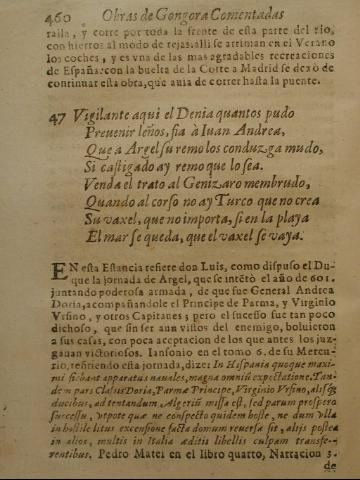 460 Obras de Gongora Comentadas
ralla, y corre por toda la frente de esta parte del rio,
con hierros al modo de rejas: alli se arriman en el Verano
los coches, y es vna de las mas agradables recreaciones
de España: con la buelta de la Corte a Madrid se dexò de
continuar esta obra, que auia de correr hasta la puente.
47 Vigilante aqui el Denia quantos pudo
Preuenir leños, fia à Iuan Andrea,
Que a Argel su remo los conduzga mudo,
Si castigado ay remo que lo sea.
Venda el trato al Genizaro membrudo,
Quando al corso no ay Turco que no crea
Su vaxel, que no importa, si en la playa
El mar se queda, que el vaxel se vaya.
EN esta Estancia refiere don Luis, como dispuso el Du-
que la jornada de Argel, que se intẽtò el año de 601.
juntando poderosa armada, de que fue General Andrea
Doria, acompañandole el Principe de Parma, y Virginio
Vrsino, y otros Capitanes; pero el sucesso fue tan poco
dichoso, que sin ser aun vistos del enemigo, boluieron
a sus casas, con poca aceptacion de los que antes los juz-
gauan victoriosos. Iansonio en el tomo 6. de su Mercu-
rio, refiriendo esta jornada, dize: In Hispania quoque maxi-
mi fiebant apparatus nauales, magna omniũ expectatione. Tan-
dem pars Classis Doria, Parmæ Principe, Virginio Vrsino, alisq;
ducibus, ad tentandum Algeriũ missa est, sed parum prospero
successu, vtpote quæ ne conspecto quidem hoste, ne dum vlla
in hostile litus excensione facta domum reuersa sit, alijs postea
in alios, multis in Italia æditis libellis culpam transfe-
rentibus. Pedro Matei en el libro quarto, Narracion 3.
de